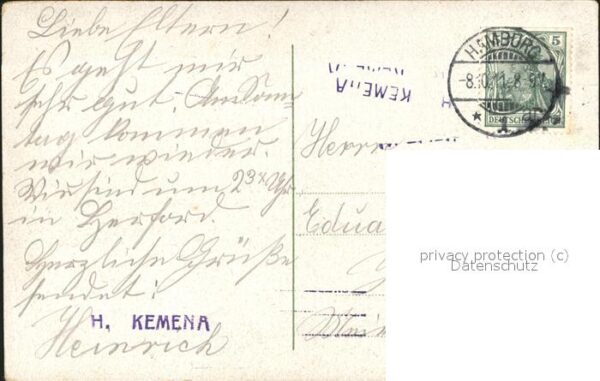 Liebe Eltern!
Es geht mir
sehr gut. Am Sonn-
tag kommen
wir wieder.
Wir sind um 2 Uhr
in Herford.
Herzliche Grüße
sendet:
H. KEMENA
Heinrich
KEMENA
HAMBURG
-8.10.11.8-9
* 1
5
DEUTSCHES REICH
Herrn
Edua
privacy protection (c)
Datenschutz